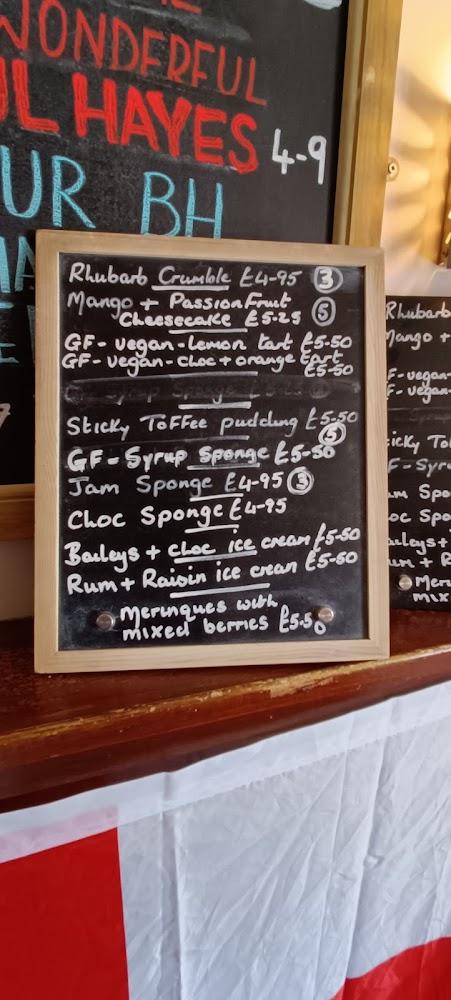 WONDERFUL
UL HAYES
4-9
UR BH
Rhubarb Crumble £4-95 ③
Mango + Passion Fruit
Cheesecake £5-25 ⑤
GF- vegan-lemon tart £5-50
GF- vegan-choc+orange tart
£5-50
Sticky Toffee pudding £5-50
⑤
GF-Syrup Sponge £5-50
Jam Sponge £4-95 ③
Choc Sponge £4-95
Baileys + choc ice cream £5-50
Rum + Raisin ice cream £5-50
Meringues with
mixed berries £5.50
Rhubarb
Mango +
F-vegan-
F-vegan-
icky To
F-Syru
am Spo
oc Spo
aileys+
um + R
Meru
mix